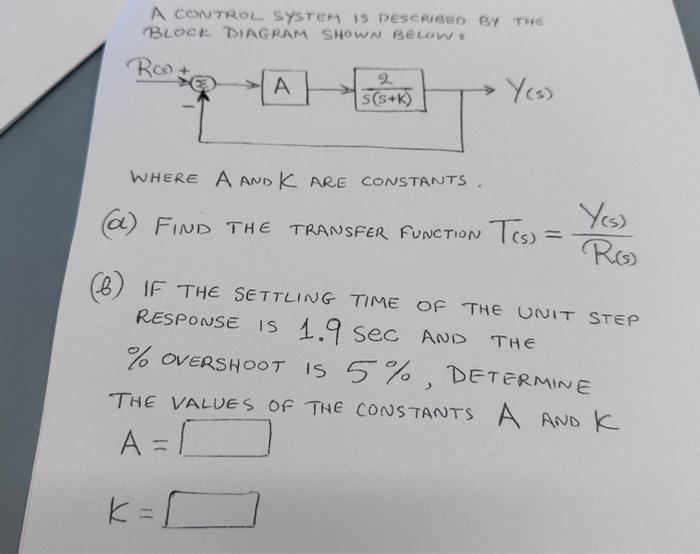 A CONTROL SYSTEM IS DESCRIBED BY THE
BLOCK DIAGRAM SHOWN BELOW:
R(s) + Σ A 2/S(S+K) Y(s)
−
WHERE A AND K ARE CONSTANTS.
(a) FIND THE TRANSFER FUNCTION T(s) = Y(s)/R(s)
(b) IF THE SETTLING TIME OF THE UNIT STEP
RESPONSE IS 1.9 sec AND THE
% OVERSHOOT IS 5%, DETERMINE
THE VALUES OF THE CONSTANTS A AND K
A =
K =